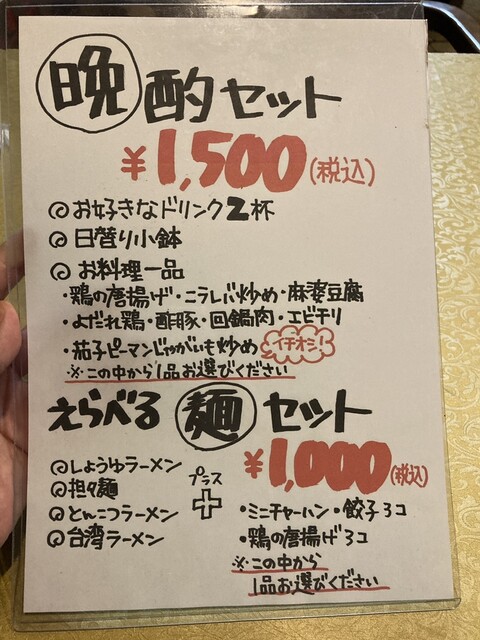 晩酌セット
¥1,500(税込)
◎お好きなドリンク2杯
◎日替り小鉢
◎お料理一品
・鶏の唐揚げ・ニラレバ炒め・麻婆豆腐
・よだれ鶏・酢豚・回鍋肉・エビチリ
・茄子ピーマンじゃがいも炒め イチオシ!
※この中から1品お選びください
えらべる麺セット
¥1,000(税込)
◎しょうゆラーメン
◎担々麺
◎とんこつラーメン
◎台湾ラーメン
プラス
+
・ミニチャーハン・餃子3コ
・鶏の唐揚げ3コ
※この中から
1品お選びください